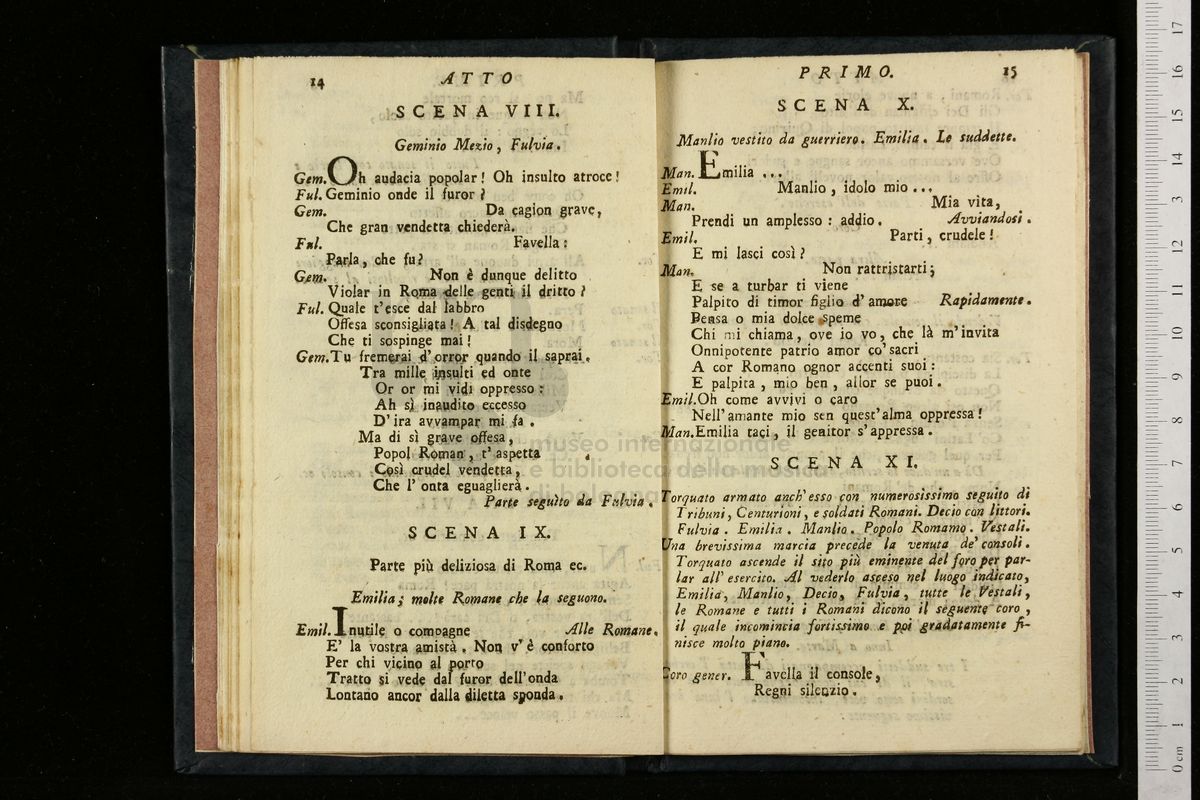 14 ATTO
SCENA VIII.
Geminio Mezio, Fulvia.
Gem. Oh audacia popolar! Oh insulto atroce!
Ful. Geminio onde il furor?
Gem. Da cagion grave,
Che gran vendetta chiederà.
Ful. Favella:
Parla, che fu?
Gem. Non è dunque delitto
Violar in Roma delle genti il dritto?
Ful. Quale t'esce dal labbro
Offesa sconsigliata! A tal disdegno
Che ti sospinge mai!
Gem. Tu fremerai d'orror quando il saprai.
Tra mille insulti ed onte
Or or mi vidi oppresso:
Ah sì inaudito eccesso
D'ira avvampar mi fa.
Ma di sì grave offesa,
Popol Roman, t'aspetta
Così crudel vendetta,
Che l'onta eguaglierà.
Parte seguìto da Fulvia.
SCENA IX.
Parte più deliziosa di Roma ec.
Emilia; molte Romane che la seguono.
Emil. Inutile o compagne Alle Romane.
E' la vostra amistà. Non v'è conforto
Per chi vicino al porto
Tratto si vede dal furor dell'onda
Lontano ancor dalla diletta sponda.
PRIMO. 15
SCENA X.
Manlio vestito da guerriero. Emilia. Le suddette.
Man. Emilia ...
Emil. Manlio, idolo mio ...
Man. Mia vita,
Prendi un amplesso: addio. Avviandosi.
Emil. Parti, crudele!
E mi lasci così?
Man. Non rattristarti;
E se a turbar ti viene
Palpito di timor figlio d'amore Rapidamente.
Pensa o mia dolce speme
Chi mi chiama, ove io vo, che là m'invita
Onnipotente patrio amor co' sacri
A cor Romano ognor accenti suoi:
E palpita, mio ben, allor se puoi.
Emil. Oh come avvivi o caro
Nell'amante mio sen quest'alma oppressa!
Man. Emilia taci, il genitor s'appressa.
SCENA XI.
Torquato armato anch'esso con numerosissimo seguito di
Tribuni, Centurioni, e soldati Romani. Decio con littori.
Fulvia. Emilia. Manlio. Popolo Romamo. Vestali.
Una brevissima marcia precede la venuta de' consoli.
Torquato ascende il sito più eminente del foro per par-
lar all'esercito. Al vederlo asceso nel luogo indicato,
Emilia, Manlio, Decio, Fulvia, tutte le Vestali,
le Romane e tutti i Romani dicono il seguente coro,
il quale incomincia fortissimo e poi gradatamente fi-
nisce molto piano.
Coro gener. Favella il console,
Regni silenzio.
museo internazionale
e biblioteca della musica
di bologna
0 cm 1 2 3 4 5 6 7 8 9 10 11 12 13 14 15 16 17